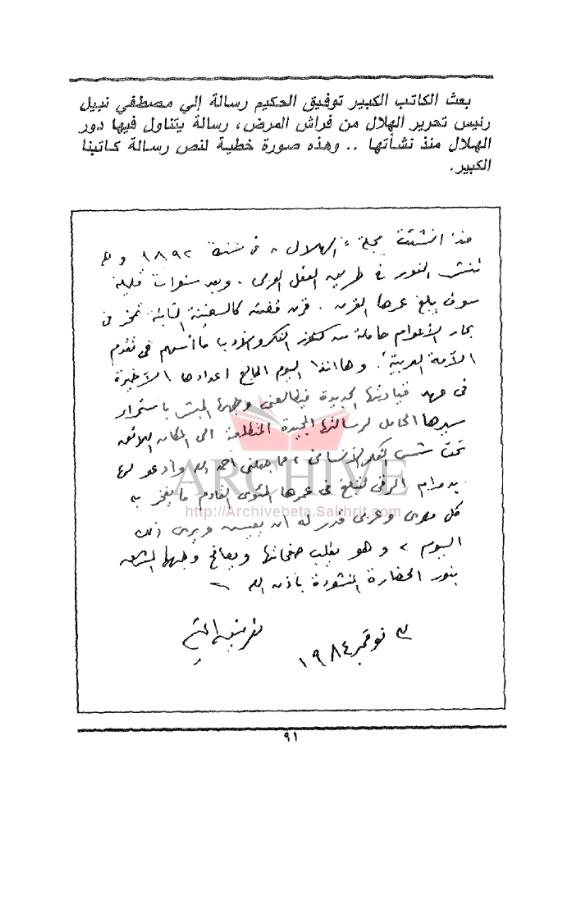 بعث الكاتب الكبير توفيق الحكيم رسالة إلي مصطفي نبيل
رئيس تحرير الهلال من فراش المرض، رسالة يتناول فيها دور
الهلال منذ نشأتها .. وهذه صورة خطية لنص رسالة كاتبنا
الكبير.
منذ انشئت مجلة «الهلال» فى سنة ١٨٩٢ وهى
تنشر النور فى طريق العقل العربى. وبعد سنوات قليلة
سوف يبلغ عمرها القرن. قرن قضته كالسفينة الثابتة تمخر فى
بحار الأعوام حاملة من كنوز الفكر والأدب ما أسهم فى تقدم
الأمة العربية. وهاأنذا اليوم اطالع اعدادها الأخيرة
فى عهد قيادتها الجديدة فيطالعنى وجهها المبشر باستمرار
سيرها الحامل لرسالتها المجيدة المتطلعة الى المكان اللائق
تحت شمس الفكر الإنسانى، مما جعلنى أحمد الله وادعو لها
بدوام الرقى لتبلغ فى عمرها المئوى القادم ما يفخر به
كل مصرى وعربى قدر له ان يعيش ويرى ذلك
اليوم، وهو يقلب صفحاتها ويصافح وجهها المشرق
بنور الحضارة المنشودة باذن الله
توفيق الحكيم
٣ نوفمبر ١٩٨٤
ARCHIVE
http://Archivebeta.Sakhrit.com
٩١